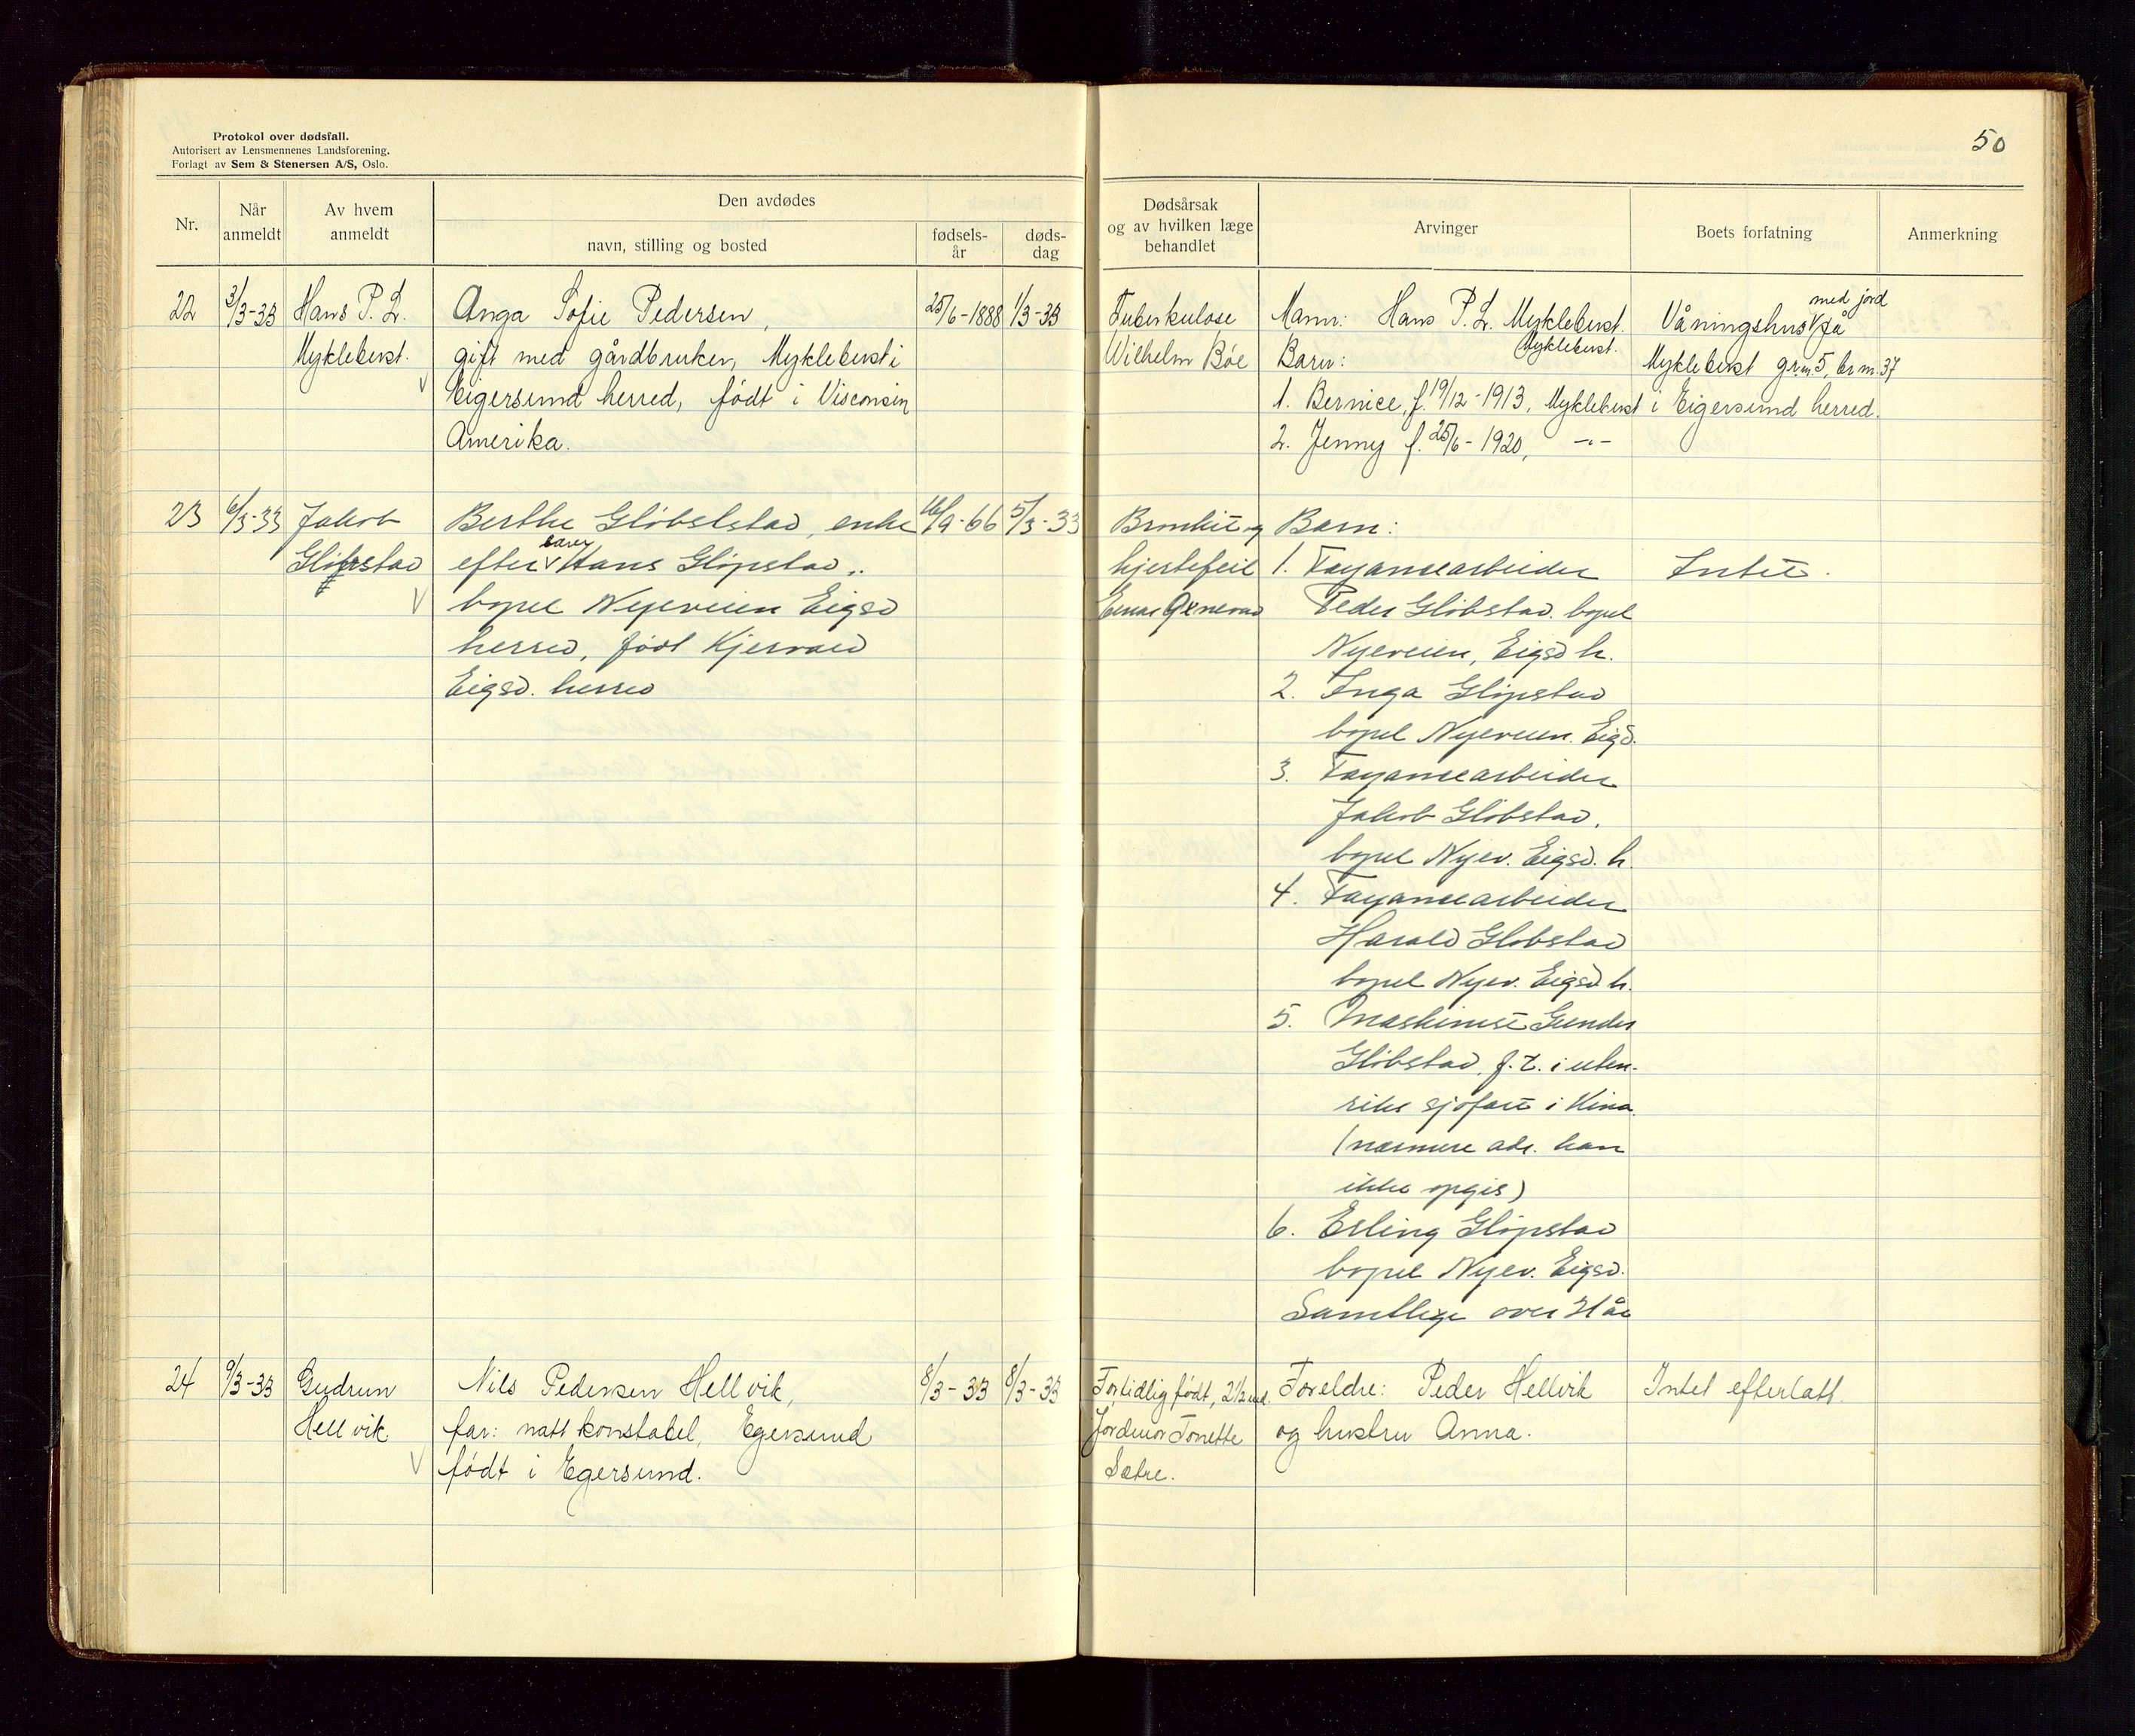 Protokol over dødsfall.
Autorisert av Lensmennenes Landsforening.
Forlagt av Sem & Stenersen A/S, Oslo.
50
Nr.
Når anmeldt
Av hvem anmeldt
Den avdødes
navn, stilling og bosted
fødsels-år
døds-dag
Dødsårsak og av hvilken læge behandlet
Arvinger
Boets forfatning
Anmerkning
22
3/3-33
Hans P. L.
Myklebust.
Anga Sofie Pedersen,
gift med gårdbruker, Myklebust i
Eigersund herred, født i Visconsin
Amerika.
25/6-1888
1/3-33
Tuberkulose
Wilhelm Bøe
Mann: Hans P. L. Myklebust.
Myklebust.
Barn:
1. Bernice, f. 19/12-1913, Myklebust
2. Jenny f. 25/6-1920, -"-
med jord
Våningshus V på
Myklebust gr.n. 5, br.n. 37
i Eigersund herred.
23
6/3-33
Jakob
Glipstad
Berthe Glibstad, enke
efter V Hans Glipstad,
bopel Nyeveien Eigsd
herred, født Kjervald
Eigsd. herred
16/9-66
5/3-33
Bronkit og
hjertefeil
Barn:
1. Fayansearbeider
Peder Glibstad. bopel
Nyeveien, Eigsd h.
2. Inga Glipstad
bopel Nyeveien. Eigd.
3. Fayansearbeider
Jakob Glibstad.
bopel Nyev. Eigsd. h.
4. Fayansearbeider
Harald Glibstad
bopel Nyev. Eigsd h.
5. Maskinist Gunder
Glibstad, f. t. i uten-
riks sjøfart i Kina
(nærmere adr. kan
ikke opgis)
6. Erling Glipstad
bopel Nyev. Eigsd.
Samtlige over 21 år
Intet.
24
9/3-33
Gudrun
Hellvik.
Nils Pedersen Hellvik,
far: nattkonstabel, Egersund
født i Egersund.
8/3-33
8/3-33
For tidlig født, 2 1/2 md.
Jordmor Tonette
Sætre.
Foreldre: Peder Hellvik
og hustru Anna.
Intet efterlatt.